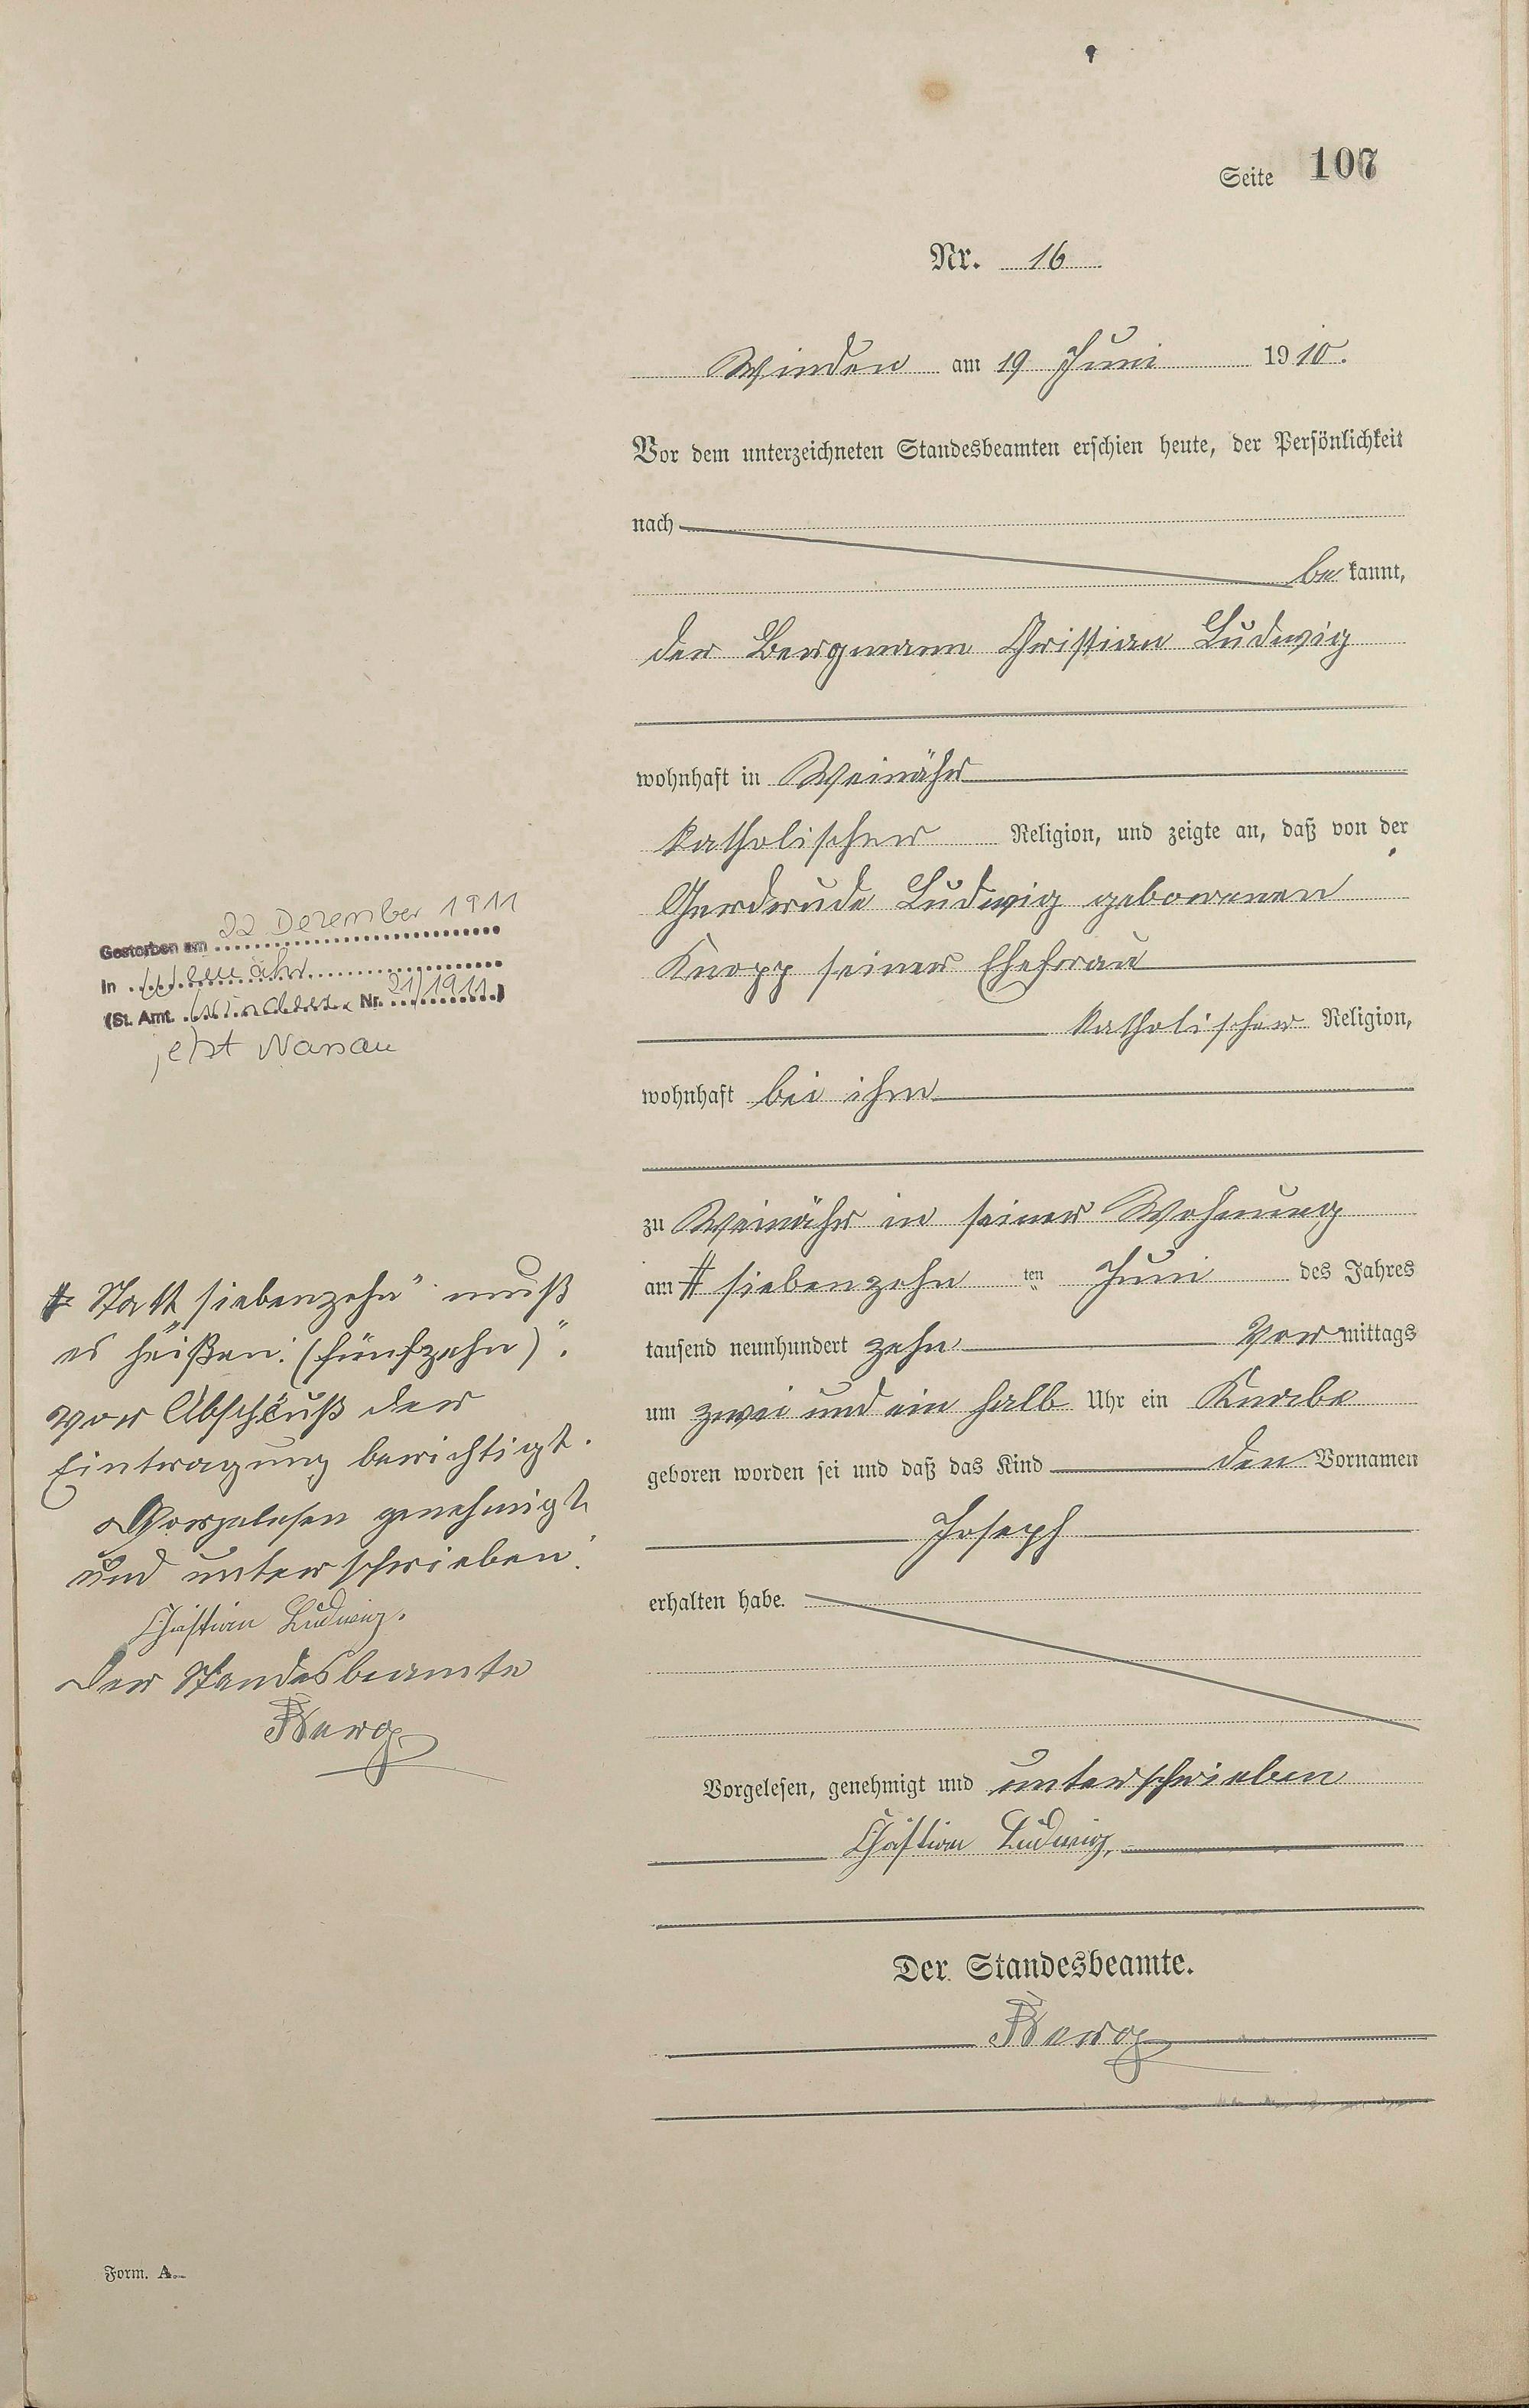 Seite 107
Nr. 16
Winden am 19 Juni 1910.
Vor dem unterzeichneten Standesbeamten erschien heute, der Persönlichkeit
nach
be kannt,
der Bergmann Christian Ludwig
wohnhaft in Weinähr
katholischer Religion, und zeigte an, daß von der
Gerdrude Ludwig geborenen
Knopp seiner Ehefrau
katholischer Religion,
wohnhaft bei ihm
zu Weinähr in seiner Wohnung
am # siebenzehn ten Juni des Jahres
tausend neunhundert zehn Vor mittags
um zwei und ein halb Uhr ein Knabe
geboren worden sei und daß das Kind den Vornamen
Joseph
erhalten habe.
Vorgelesen, genehmigt und unterschrieben
Christian Ludwig.
Der Standesbeamte.
Gestorben am 22 Dezember 1911
In Weinähr
(St. Amt. Winden Nr. 21/1911)
jetzt Nassau
# Statt "siebenzehn" muß
es heißen: (fünfzehn)".
vor Abschluß der
Eintragung berichtigt.
Vorgelesen genehmigt
und unterschrieben:
Christian Ludwig.
Der Standesbeamte
Form. A.